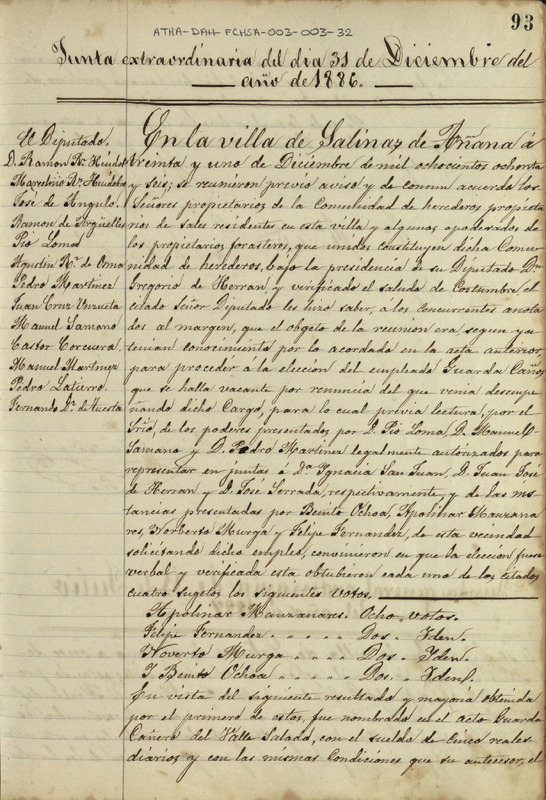 93
ATHA-DAH-FCHSA-003-003-32
Junta extraordinaria del dia 31 de Diciembre del
año de 1886.
El Diputado.
D. Ramon Rz. Huidob
Marcelino Rz. Huidobro
José de Angulo.
Ramon de Argüelles
Pio Loma
Agustin Rz. de Oma
Pedro Martinez
Juan Cruz Unzueta
Manuel Samano
Castor Corcuera
Manuel Martinez
Pedro Latierro.
Fernando Dz. de Cuesta
En la villa de Salinas de Añana á
treinta y uno de Diciembre de mil ochocientos ochenta
y seis; se reunieron previo aviso y de comun acuerdo los
Señores propietarios de la Comunidad de herederos propieta
rios de sales residentes en esta villa y algunos apoderados de
los propietarios forasteros, que unidos constituyen dicha Comu
nidad de herederos, bajo la presidencia de su Diputado Dn.
Gregorio de Herran, y verificado el saludo de Costumbre el
citado Señor Diputado les hizo saber, a los concurrentes anota
dos al margen, que el obgeto de la reunion era segun ya
tenian conocimiento por lo acordado en la acta anterior,
para proceder á la eleccion del empleado Guarda Caños
que se halla vacante por renuncia del que venia desempe
ñando dicho Cargo, para lo cual previa lectura, por el
Srio, de los poderes presentados por D. Pio Loma, D. Manuel
Samano y D. Pedro Martinez legalmente autorizados para
representar en juntas á Da. Ygnacia San Juan, D. Juan José
de Herran y D. José Serrada, respectivamente, y de las ins
tancias presentadas por Benito Ochoa, Apolinar Manzana
res, Norberto Murga y Felipe Fernandez, de esta vecindad
solicitando dicho empleo, convinieron en que la eleccion fuese
verbal y verificada esta obtubieron cada uno de los citados
cuatro sugetos los siguientes votos.
Apolinar Manzanares. Ocho votos.
Felipe Fernandez. " " " " Dos " Yden.
Noverto Murga " " " " Dos " Yden.
Y Benito Ochoa " " " " Dos. " Yden.
En vista del siguiente resultado y mayoría obtenida
por el primero de estos, fue nombrado en el acto Guarda
Cañero del Valle Salado, con el sueldo de Cinco reales
diarios y con las mismas Condiciones que su antecesor, el